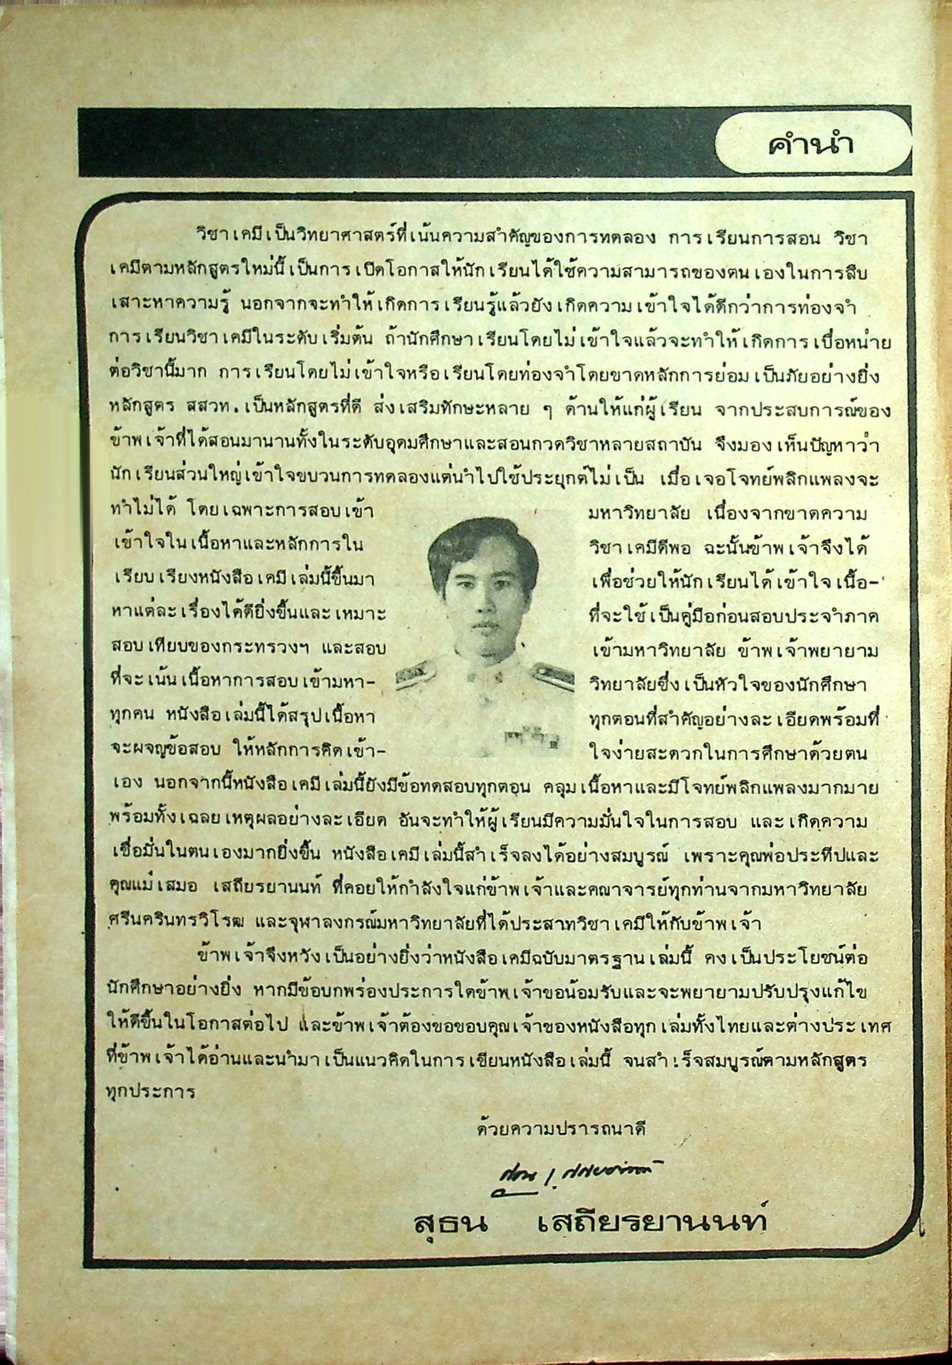 คำนำ
วิชาเคมีเป็นวิทยาศาสตร์ที่เน้นความสำคัญของการทดลอง การเรียนการสอน วิชา
เคมีตามหลักสูตรใหม่นี้เป็นการเปิดโอกาสให้นักเรียนได้ใช้ความสามารถของตนเองในการสืบ
เสาะหาความรู้ นอกจากจะทำให้เกิดการเรียนรู้แล้วยังเกิดความเข้าใจได้ดีกว่าการท่องจำ
การเรียนวิชาเคมีในระดับเริ่มต้น ถ้านักศึกษาเรียนโดยไม่เข้าใจแล้วจะทำให้เกิดการเบื่อหน่าย
ต่อวิชานี้มาก การเรียนโดยไม่เข้าใจหรือเรียนโดยท่องจำโดยขาดหลักการย่อมเป็นภัยอย่างยิ่ง
หลักสูตร สสวท. เป็นหลักสูตรที่ดี ส่งเสริมทักษะหลาย ๆ ด้านให้แก่ผู้เรียน จากประสบการณ์ของ
ข้าพเจ้าที่ได้สอนมานานทั้งในระดับอุดมศึกษาและสอนกวดวิชาหลายสถาบัน จึงมองเห็นปัญหาว่า
นักเรียนส่วนใหญ่เข้าใจขบวนการทดลองแต่นำไปใช้ประยุกต์ไม่เป็น เมื่อเจอโจทย์พลิกแพลงจะ
ทำไม่ได้ โดยเฉพาะการสอบเข้า มหาวิทยาลัย เนื่องจากขาดความ
เข้าใจในเนื้อหาและหลักการใน วิชาเคมีดีพอ ฉะนั้นข้าพเจ้าจึงได้
เรียบเรียงหนังสือเคมีเล่มนี้ขึ้นมา เพื่อช่วยให้นักเรียนได้เข้าใจเนื้อ-
หาแต่ละเรื่องได้ดียิ่งขึ้นและเหมาะ ที่จะใช้เป็นคู่มือก่อนสอบประจำภาค
สอบเทียบของกระทรวงฯ และสอบ เข้ามหาวิทยาลัย ข้าพเจ้าพยายาม
ที่จะเน้นเนื้อหาการสอบเข้ามหา- วิทยาลัยซึ่งเป็นหัวใจของนักศึกษา
ทุกคน หนังสือเล่มนี้ได้สรุปเนื้อหา ทุกตอนที่สำคัญอย่างละเอียดพร้อมที่
จะผจญข้อสอบ ให้หลักการคิดเข้า- ใจง่ายสะดวกในการศึกษาด้วยตน
เอง นอกจากนี้หนังสือเคมีเล่มนี้ยังมีข้อทดสอบทุกตอน คลุมเนื้อหาและมีโจทย์พลิกแพลงมากมาย
พร้อมทั้งเฉลยเหตุผลอย่างละเอียด อันจะทำให้ผู้เรียนมีความมั่นใจในการสอบ และเกิดความ
เชื่อมั่นในตนเองมากยิ่งขึ้น หนังสือเคมีเล่มนี้สำเร็จลงได้อย่างสมบูรณ์ เพราะคุณพ่อประทีปและ
คุณแม่เสมอ เสถียรยานนท์ ที่คอยให้กำลังใจแก่ข้าพเจ้าและคณาจารย์ทุกท่านจากมหาวิทยาลัย
ศรีนครินทรวิโรฒ และจุฬาลงกรณ์มหาวิทยาลัยที่ได้ประสาทวิชาเคมีให้กับข้าพเจ้า
ข้าพเจ้าจึงหวังเป็นอย่างยิ่งว่าหนังสือเคมีฉบับมาตรฐานเล่มนี้ คงเป็นประโยชน์ต่อ
นักศึกษาอย่างยิ่ง หากมีข้อบกพร่องประการใดข้าพเจ้าขอน้อมรับและจะพยายามปรับปรุงแก้ไข
ให้ดีขึ้นในโอกาสต่อไป และข้าพเจ้าต้องขอขอบคุณเจ้าของหนังสือทุกเล่มทั้งไทยและต่างประเทศ
ที่ข้าพเจ้าได้อ่านและนำมาเป็นแนวคิดในการเขียนหนังสือเล่มนี้ จนสำเร็จสมบูรณ์ตามหลักสูตร
ทุกประการ
ด้วยความปรารถนาดี
สุธน เสถียรยานนท์